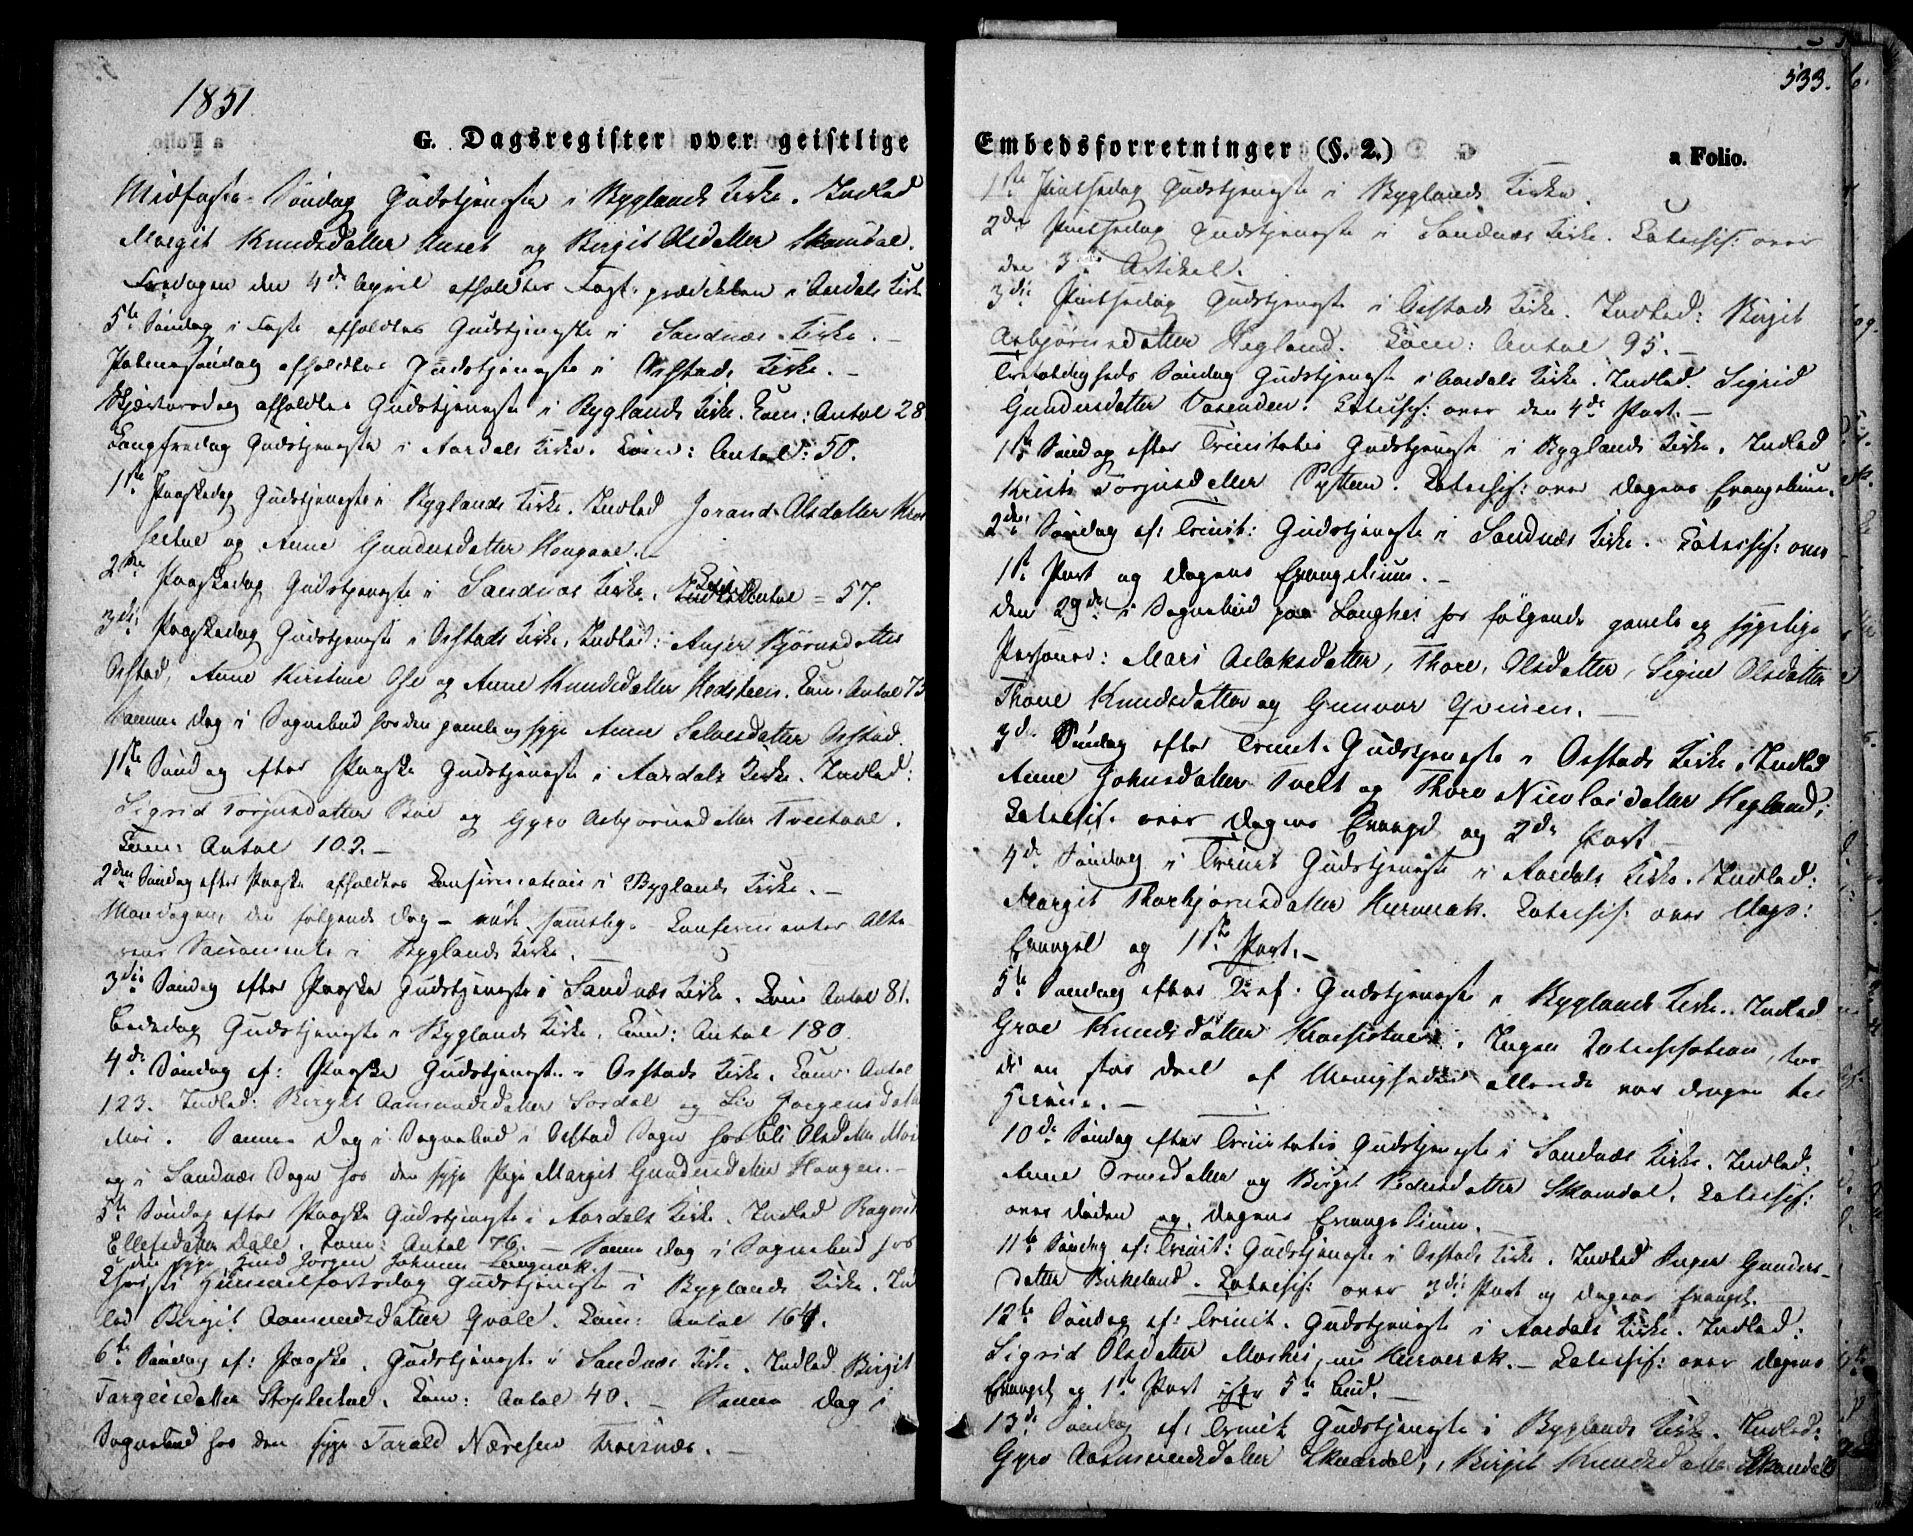 1851.
G. Dagsregister over geistlige
Midfaste-Søndag Gudstjeneste i Byglands Kirke. Indled
Margit Knudsdatter Huset og Birgit Olsdatter Skamdal.
Fredagen den 4de April afholdtes Fastepræddiken i Aardals Kirke
5te Søndag i Faste afholdtes Gudstjeneste i Sandnæs Kirke. —
Palmesøndag afholdtes Gudstjeneste i Ostads Kirke. —
Skjærtorsdag afholdtes Gudstjeneste i Byglands Kirke. Com: Antal 28
Langfredag Gudstjeneste i Aardals Kirke. Com: Antal: 50.
1ste Paaskedag Gudstjeneste i Byglands Kirke. Indled Jorand Olsdatter
og Anne Gundersdatter Haugaae. —
2den Paaskedag Gudstjeneste i Sandnæs Kirke. Com: Antal = 57.
3die Paaskedag Gudstjeneste i Ostads Kirke. Indled: Anjer Bjørnsdatter
Ostad, Anne Kirstine Ose og Anne Knudsdatter Hodsteen. Com: Antal 73
Samme Dag i Sognebud hos den gamle og syge Anne Salvesdatter Ostad.
1ste Søndag efter Paaske Gudstjeneste i Aardals Kirke. Indled:
Sigrid Torjusdatter Bøe og Gyro Asbjørnsdatter Tveitaae.
Com: Antal 102. —
2den Søndag efter Paaske afholdtes Confirmation i Byglands Kirke. —
Mandagen, den følgende Dag — samtlige Confirmanter Alte-
rens Sacramente i Byglands Kirke.
3die Søndag efter Paaske Gudstjeneste i Sandnæs Kirke. Com: Antal 81.
Bededag Gudstjeneste i Byglands Kirke. Com: Antal 180.
4de Søndag ef: Paaske Gudstjeneste i Ostads Kirke. Com: Antal
123. Indled: Birgit Aamundsdatter Sordal og Liv Jørgensdatter
Moi. Samme Dag i Sognebud i Ostad Sogn hos Eli Olsdatter Moi
og i Sandnæs Sogn hos den syge Pige Margit Gundersdatter Haugen. —
5te Søndag efter Paaske Gudstjeneste i Aardals Kirke. Indled Ragnild
Ellefsdatter Dale. Com: Antal 76. — Samme Dag i Sognebud hos
den syge Jørgen Johnsen Longerak.
Christi Himmelfartsdag Gudstjeneste i Byglands Kirke. Ind-
led Birgit Aamundsdatter Qvale. Com: Antal 164.
6te Søndag ef: Paaske. Gudstjeneste i Sandnæs Kirke. Indled Birgit
Targeisdatter Com: Antal 40. — Samme Dag i
Sognebud hos den syge Tarald Næresen Froisnæs. —
533.
Embedsforretninger (§. 2.)
a Folio.
1ste Pintsedag Gudstjeneste i Byglands Kirke.
2den Pintsedag Gudstjeneste i Sandnæs Kirke. Catechis: over
den 3die Artikel.
3die Pintsedag Gudstjeneste i Ostads Kirke. Indled: Birgit
Asbjørnsdatter Hegland. Com: Antal 95. —
Trefoldigheds Søndag Gudstjeneste i Aardals Kirke. Indled. Sigrid
Gundersdatter Vasenden. Catechis: over den 4de Part. —
1ste Søndag efter Trinitatis Gudstjeneste i Byglands Kirke. Indled
Torjusdatter Pytten. Catechis: over Dagens Evangelium.
2den Søndag ef: Trinit: Gudstjeneste i Sandnæs Kirke. Catechis: over
1ste Part og Dagens Evangelium. —
den 29de i Sognebud paa Langhei for følgende gamle og sygelige
Personer: Mari Aslaksdatter, Thore Olsdatter, Signi Olsdatter
Thone Knudsdatter og Gunvor —
3die Søndag efter Trinit. Gudstjeneste i Ostads Kirke. Indled
Anne Johnsdatter Tveit og Thore Nicolaisdatter Hegland;
Catechis: over Dagens Evangel og 2den Part —
4de Søndag i Trinit Gudstjeneste i Aardals Kirke. Indled:
Margit Thorbjørnsdatter Hurverak. Catechis: over Dags:
Evangel og 1ste Part. —
5te Søndag efter Gudstjeneste i Byglands Kirke. Indled
Groe Knudsdatter. Ingen Catechisation, for-
di en stor Deel af Menigheden allerede var dragen til
Heierne. —
10de Søndag efter Trinitatis Gudstjeneste i Sandnæs Kirke. Indled:
Anne datter og Birgit Pedersdatter Skamdal. Catechis:
over Døden og Dagens Evangelium. —
11te Søndag ef: Trinit: Gudstjeneste i Ostads Kirke. Indled Inger Gunders-
datter Birkeland. Catechis: over 3die Part og Dagens Evangel. —
12te Søndag ef: Trinit. Gudstjeneste i Aardals Kirke. Indled:
Sigrid Olsdatter Hurverak. — Catechis: over Dagens
Evangel og 1ste Part 5te Bud. —
13de Søndag ef: Trinit Gudstjeneste i Byglands Kirke. Indled:
Gyro Aasmundsdatter Skaardal, Birgit Knudsdatter Skamdal